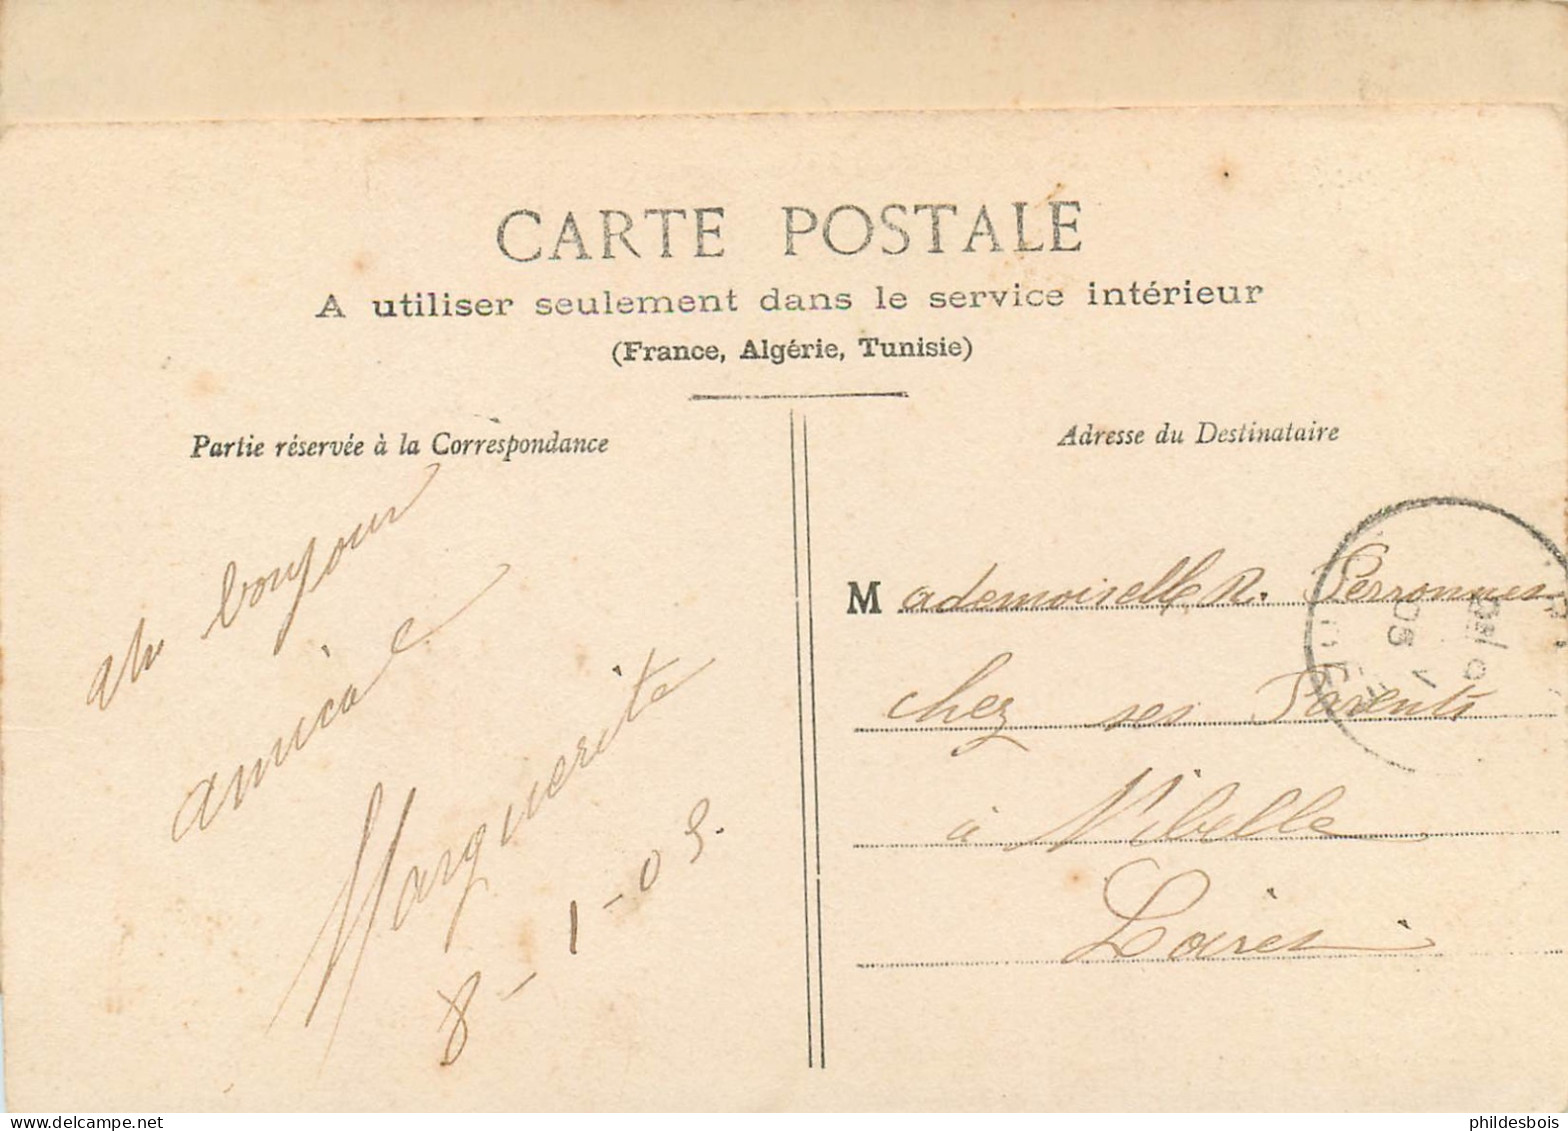 CARTE POSTALE
A utiliser seulement dans le service intérieur
(France, Algérie, Tunisie)
Partie réservée à la Correspondance
bonjour
amical
Marguerite
8-1-05.
Adresse du Destinataire
Mademoiselle R. Perronnes
chez ses Parents
à Nibelle
Loiret
05
phildesbois